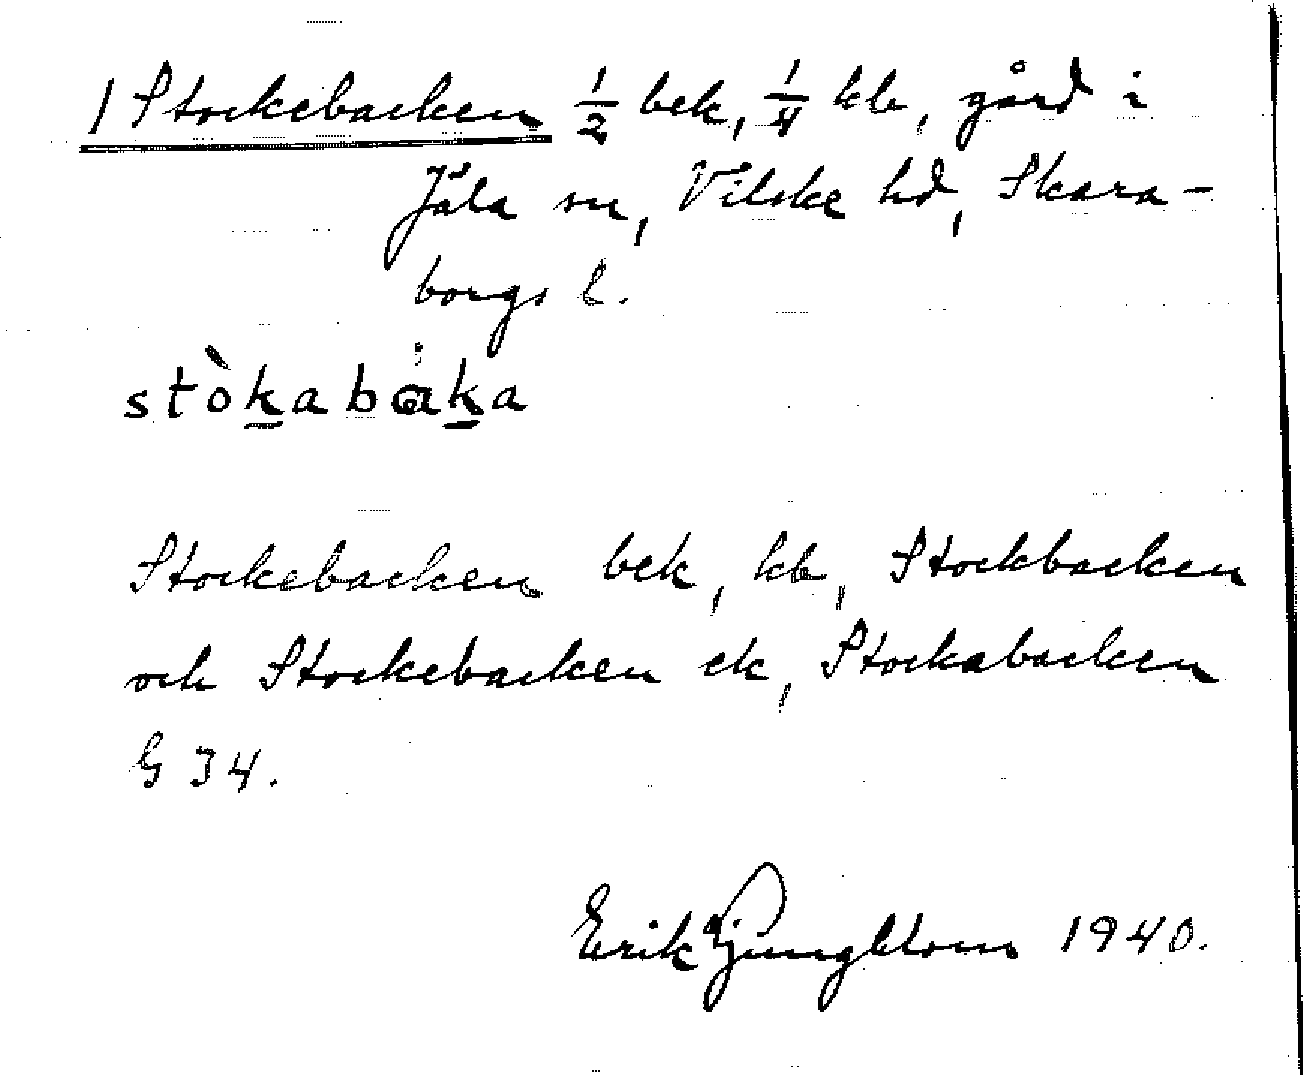 1 Stockebacken ½ bek, ¼ kb, gård i
Jäla sn, Vilske hd, Skara-
borgs l.
stòkabaka
Stockebacken bek, kb, Stockbacken
och Stockebacken ek, Stockabacken
G 34.
Erik Ljungblom 1940.